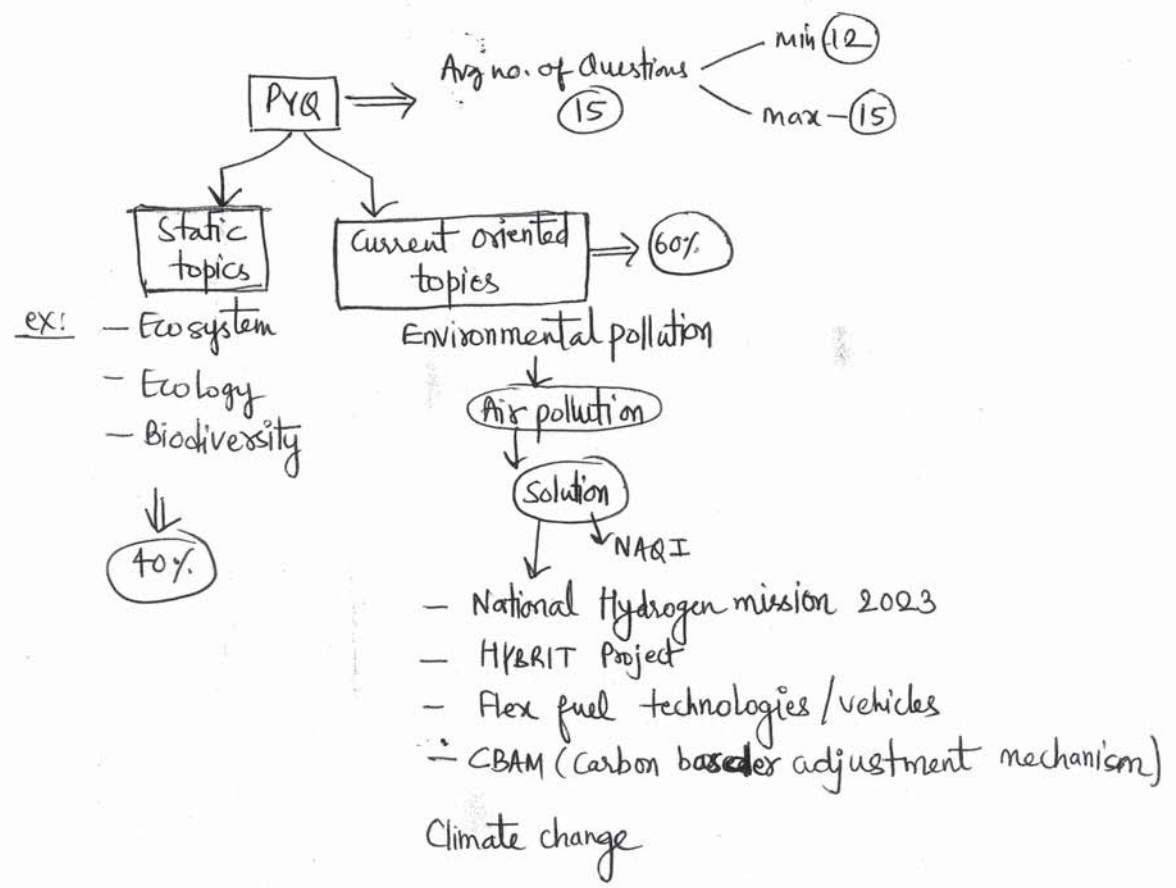 PYQ
Avg no. of Questions
15
min 12
max - 15
Static
topics
Current oriented
topics
60%
ex:
- Ecosystem
- Ecology
- Biodiversity
40%
Environmental pollution
Air pollution
Solution
NAQI
- National Hydrogen mission 2023
- HYBRIT Project
- Flex fuel technologies/vehicles
- CBAM (Carbon border adjustment mechanism)
Climate change